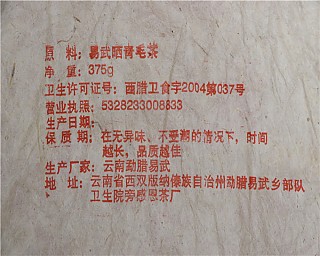 原 料：易武晒青毛茶
净 重：375g
卫生许可证号：西腊卫食字2004第037号
营业执照：5328233008833
生产日期：
保 质 期：在无异味、不受潮的情况下，时间
越长，品质越佳
生产厂家：云南勐腊易武
地 址：云南省西双版纳傣族自治州勐腊易武乡部队
卫生院旁感恩茶厂